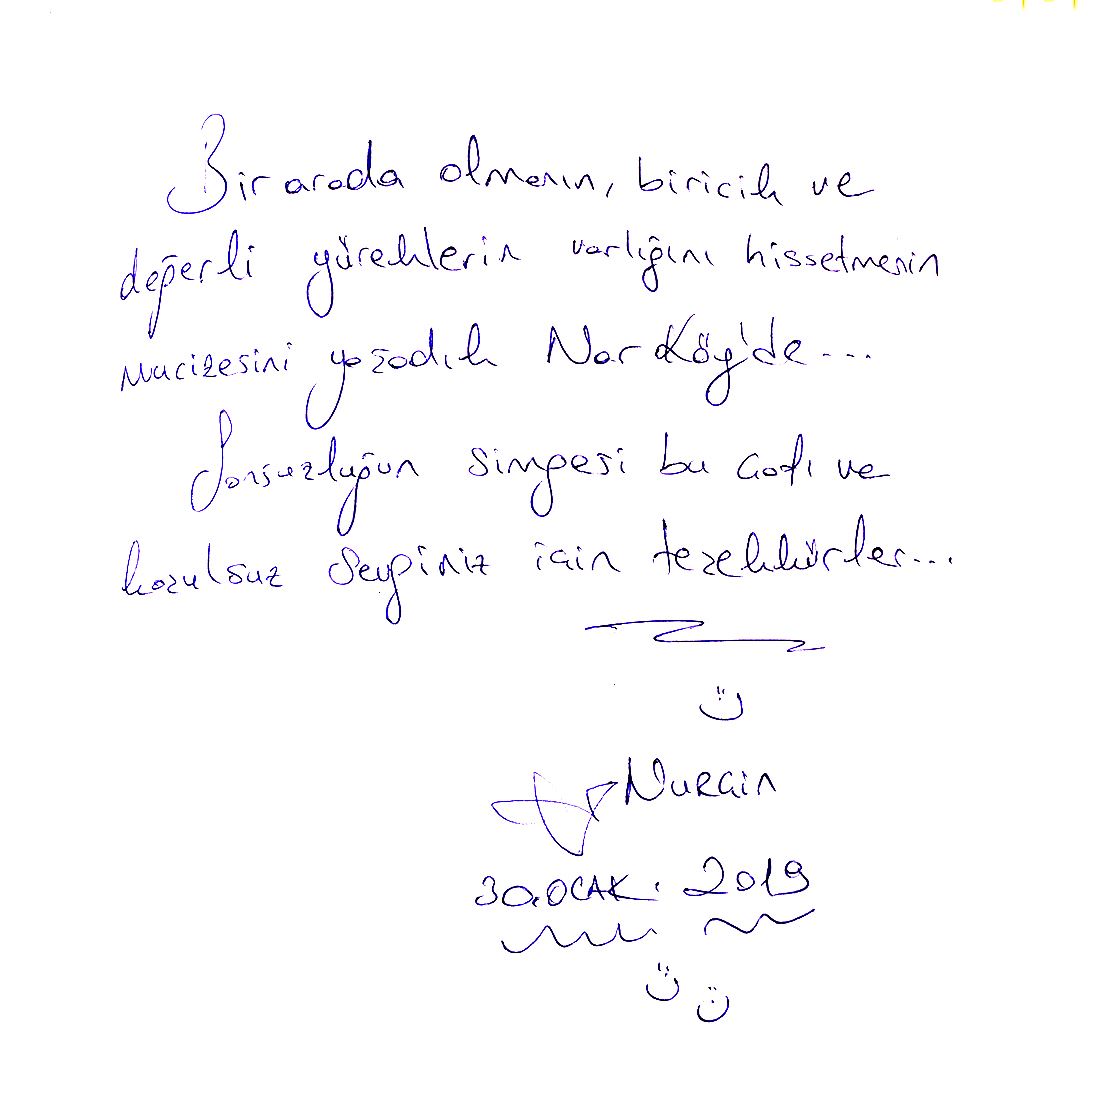 Bir arada olmanın, biricik ve
değerli yüreklerin varlığını hissetmenin
mucizesini yaşadık Nar Köy'de...
Sonsuzluğun simgesi bu çatı ve
koşulsuz sevginiz için teşekkürler...
Nurçin
30.OCAK. 2019